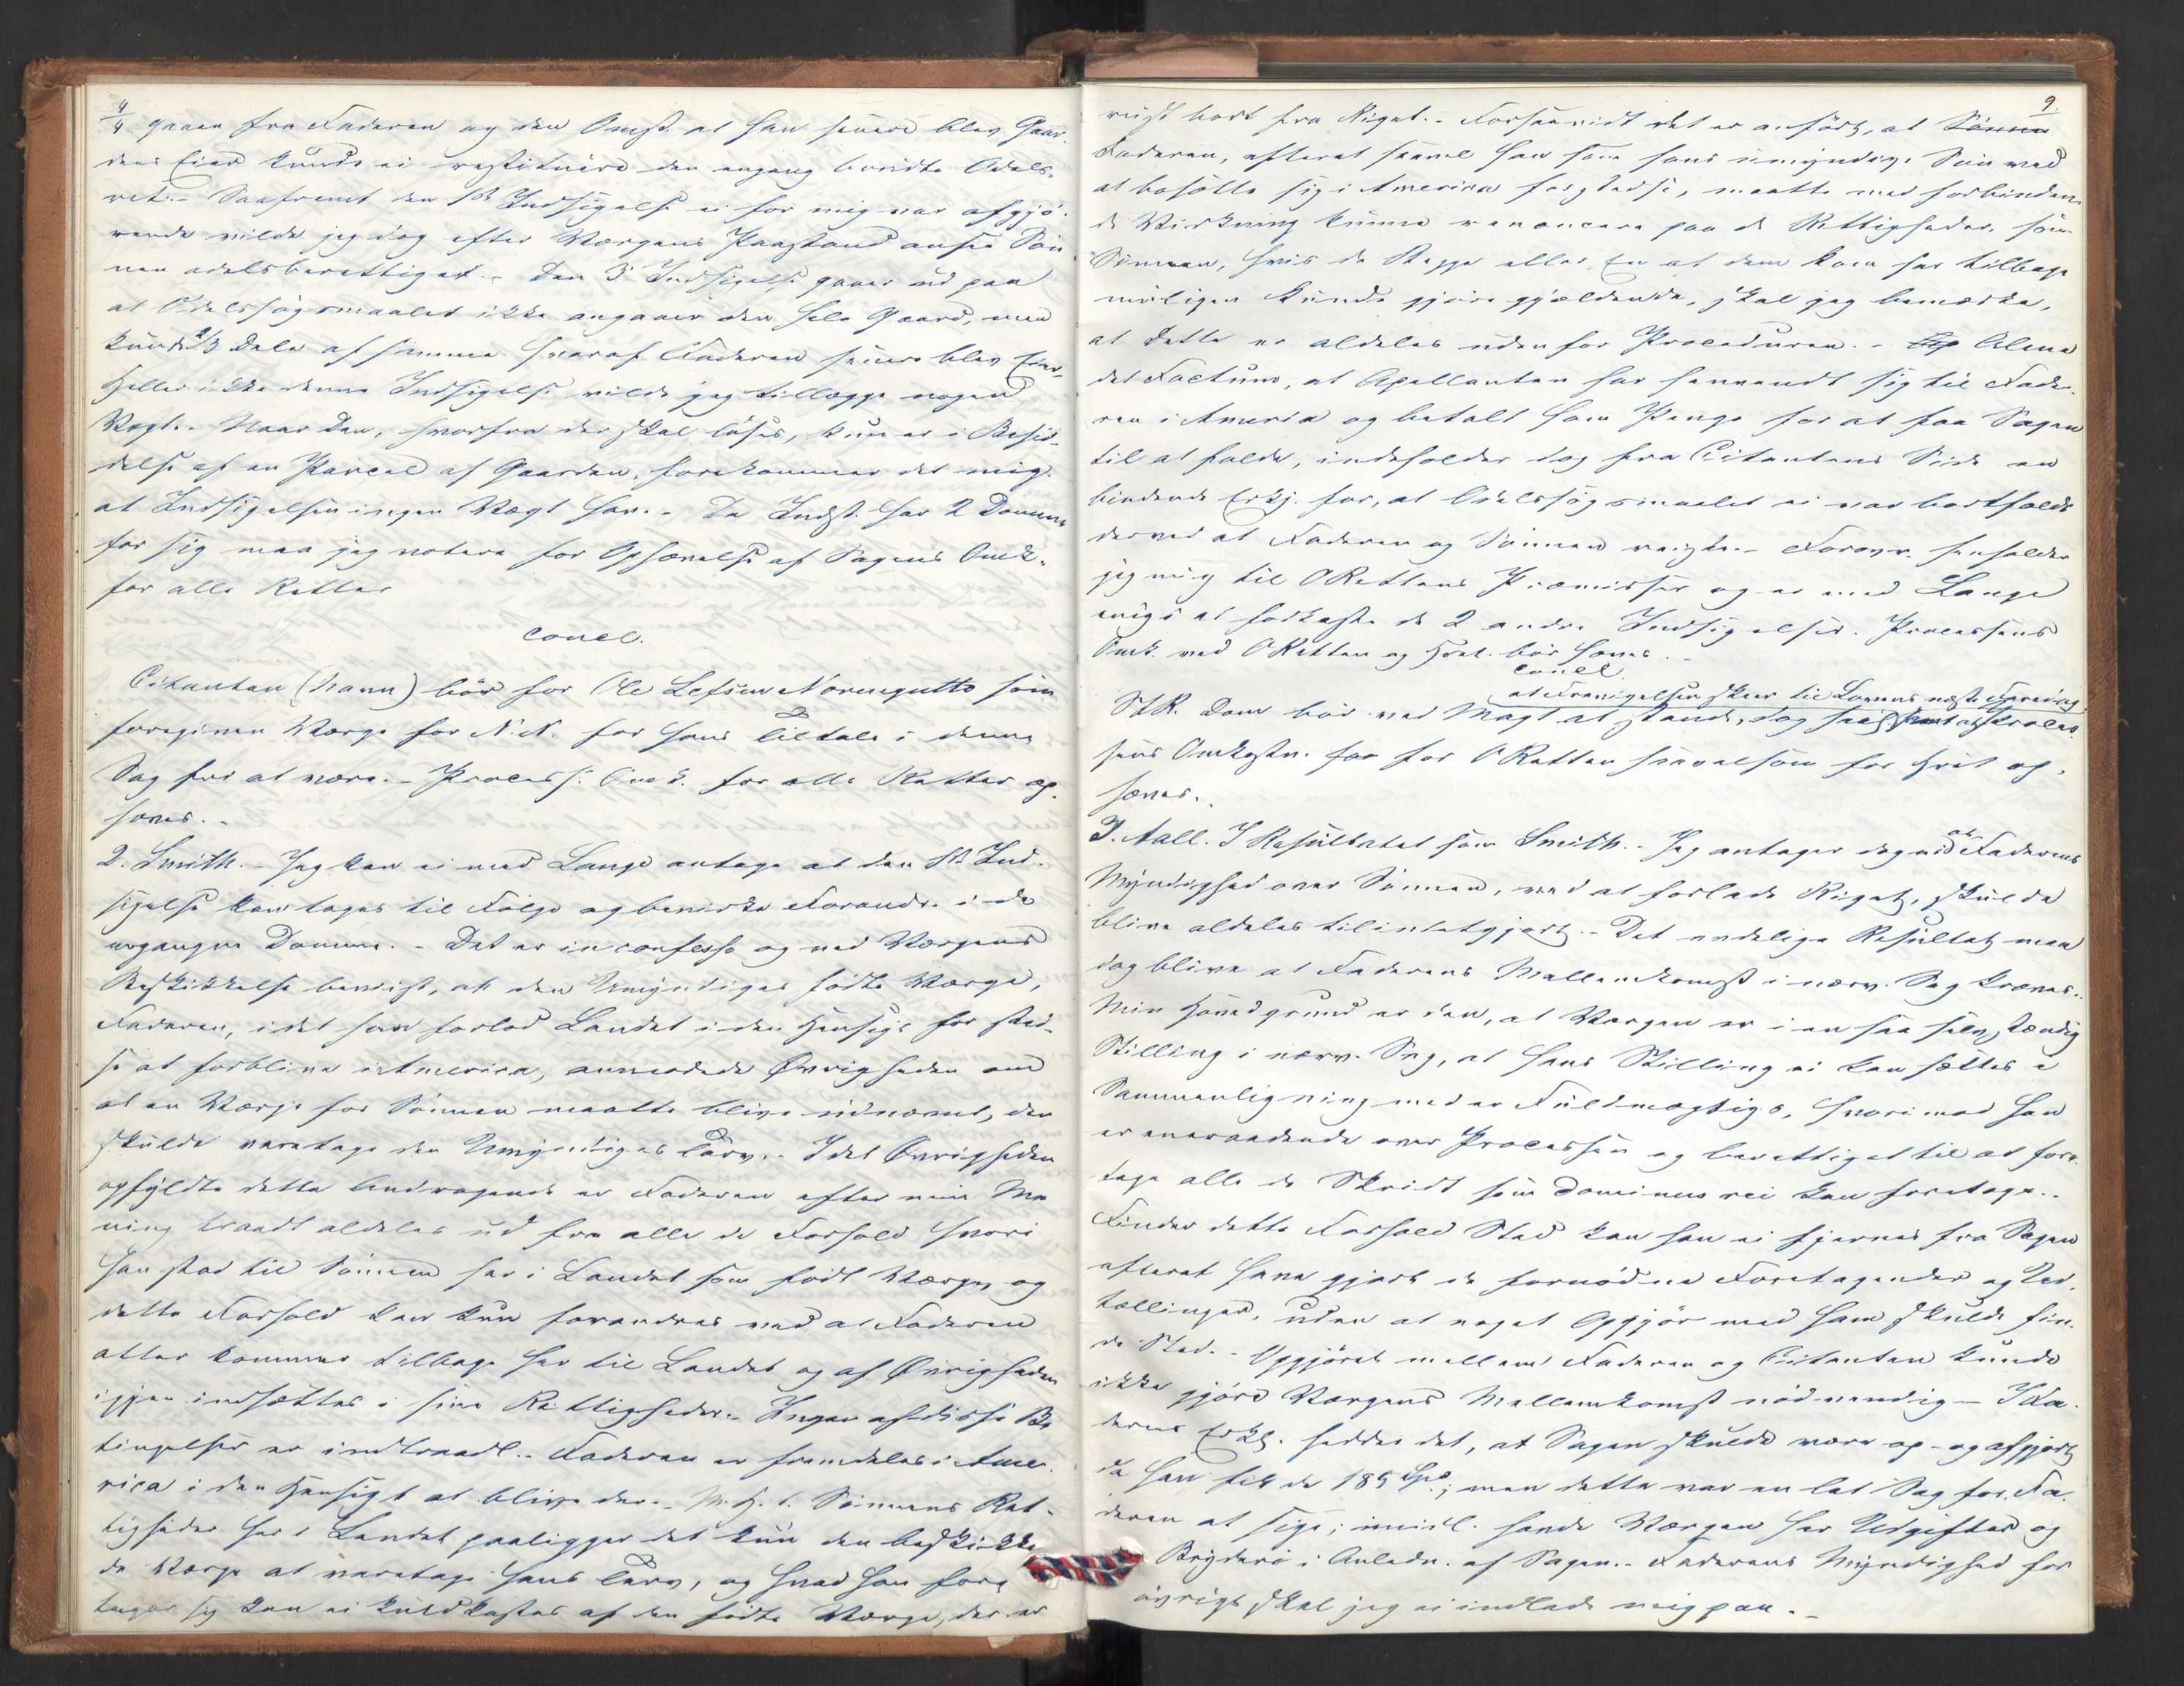 4/4 gaaen fra Faderen og den Omst. at han senere blev Gaar-
dens Eier kunde ei restituere den engang brudte Odels-
ret. - Saafremt den 1ste Indsigelse ei for mig var afgjö-
rende vilde jeg dog efter Værgens Paastand ansee Søn-
nen odelsberettiget. - Den 3die Indsigelse gaaer ud paa
at Odelssøgsmaalet ikke angaaer den hele Gaard, men
kun 2/3 Dele af samme hvoraf Faderen senere blev Eier,
Heller ikke denne Indsigelse vilde jeg tillægge nogen
Vægt. - Naar Den, hvorfra der skal löses, kun er i Besid-
delse af en Parcel af Gaarden, forekommer det mig
at Indsigelsen ingen Vægt har. - Da Indst. har 2 Domme
for sig maa jeg votere for Ophævelse af Sagens Omk.
for alle Retter
concl.
Citanten (Navn) bör for Ole Lefsen Norengutto som
foregiven Værge for N. N. for hans Tiltale i denne
Sag fri at være. - Processens Omk. for alle Retter op-
hæves. -
2. Smith. - Jeg kan ei med Lange antage at den 1ste Ind-
sigelse kan tages til Følge og bevirke Forandr. i de
ergangne Domme. - Det er in confesso og ved Værgens
Beskikkelse bevist, at den Umyndiges födte Værge,
Faderen, idet han forlod Landet i den Hensigt for sted-
se at forblive i America, anmodede Øvrigheden om
at en Værge for Sönnen maatte blive udnævnt, der
skulde varetage den Umyndiges Tarv. - Idet Øvrigheden
opfyldte dette Andragende er Faderen efter min Me-
ning traadt aldeles ud fra alle de Forhold hvori
han stod til Sönnen her i Landet som födt Værge, og
dette Forhold kan kun forandres ved at Faderen
atter kommer tilbage her til Landet og af Øvrigheden
igjen indsættes i sine Rettigheder. - Ingen af disse Be-
tingelser er indtraadt. - Faderen er fremdeles i Ame-
rica i den Hensigt at blive der. - M. H. t. Sönnens Ret-
tigheder her i Landet paaligger det kun den beskikke-
de Værge at varetage hans Tarv, og hvad han fore-
tager sig kan ei kuldkastes af den födte Værge, der er
9.
reist bort fra Riget. - Forsaavidt det er anført, at Sönnen
Faderen, efterat saavel han som hans umyndige Sön ved
at bosætte sig i America                     , maatte med forbinden-
de Virkning kunne renoncere paa de Rettigheder, som
Sönnen, hvis de begge eller En af dem kom her tilbage
muligen kunde gjöre gjældende, skal jeg bemærke,
at dette er aldeles udenfor Proceduren. - Alene
det Factum, at Apellanten har henvendt sig til Fade-
ren i America og betalt ham Penge for at faa Sagen
til at falde, indeholder dog fra Citantens Side en
bindende Erkj. for, at Odelssøgsmaalet ei var bortfaldt
derved at Faderen og Sönnen reiste. - Forøvr. henholder
jeg mig til ORettens Præmisser og er med Lange
enig i at forkaste de 2 andre Indsigelser. Processens
Omk. ved ORetten og Hret. bör hæves. -
concl.
at Fravigelsen skeer til Lovens næste Faredag
StR. Dom bör ved Magt at stande, dog saal. at Proces-
sens Omkostn. for ORetten saavelsom for Hret op-
hæves. -
3. Aall. I Resultatet som Smith. - Jeg antager dog ei at Faderens
Myndighed over Sönnen, ved at forlade Riget, skulde
blive aldeles tilintetgjort. - Det endelige Resultat maa
dog blive at Faderens Mellemkomst i nærv. Sag kræves. -
Min Hovedgrund er den, at Værgen er i en saa selvstændig
Stilling i nærv. Sag, at hans Stilling ei kan sættes i
Sammenligning med en Fuldmægtigs, hvorimod han
er eneraadende over Processen og berettiget til at fore-
tage alle de Skridt som dominus rei kan foretage. -
Finder dette Forhold Sted kan han ei fjernes fra Sagen
efterat have gjort de fornödne Foretagender og Ud-
tællinger, uden at noget Opgjör med ham skulde fin-
de Sted. - Opgjöret mellem Faderen og Citanten kunde
ikke gjöre Værgens Mellemkomst nödvendig - I Fa-
derens Erkl. hedder det, at Sagen skulde være op- og afgjort
da han fik de 185 Spd.; men dette var en let Sag for Fa-
deren at sige; imidl. havde Værgen her Udgifter og
Bryderi i Anledn. af Sagen. - Faderens Myndighed for
øvrigt skal jeg ei indlade mig paa. -